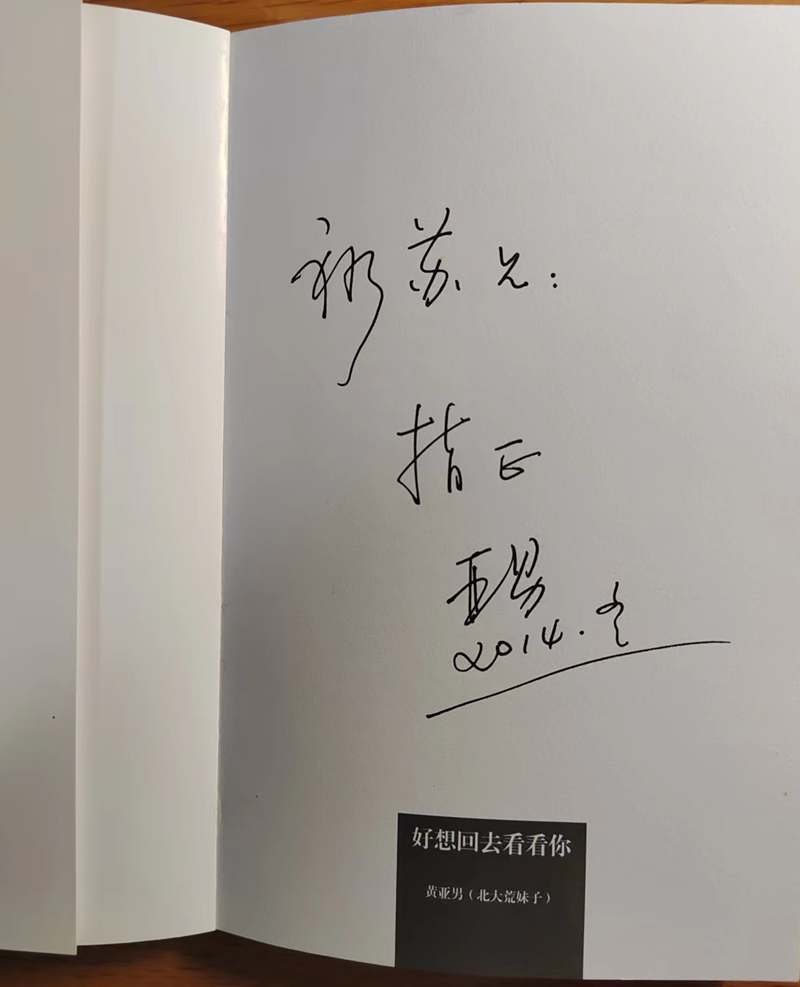 苏兄：
指正
亚男
2014.
好想回去看看你
黄亚男（北大荒妹子）